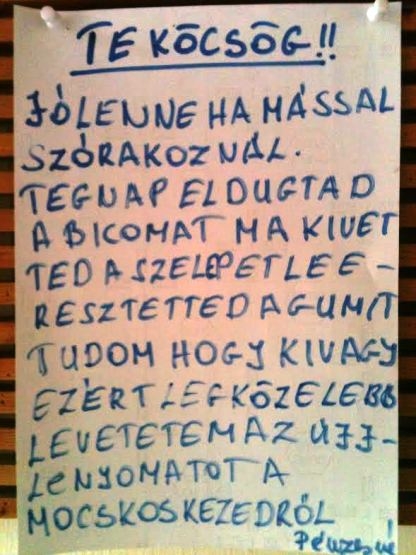 TE KÖCSÖG!!
JÓ LENNE HA MÁSSAL
SZÓRAKOZNÁL.
TEGNAP ELDUGTAD
A BICOMAT MA KIVET
TED A SZELEPET LEE-
RESZTETTED A GUMIT
TUDOM HOGY KI VAGY
EZÉRT LEGKÖZELEBB
LEVETETEM AZ ÚJJ-
LENYOMATOT A
MOCSKOS KEZEDRŐL